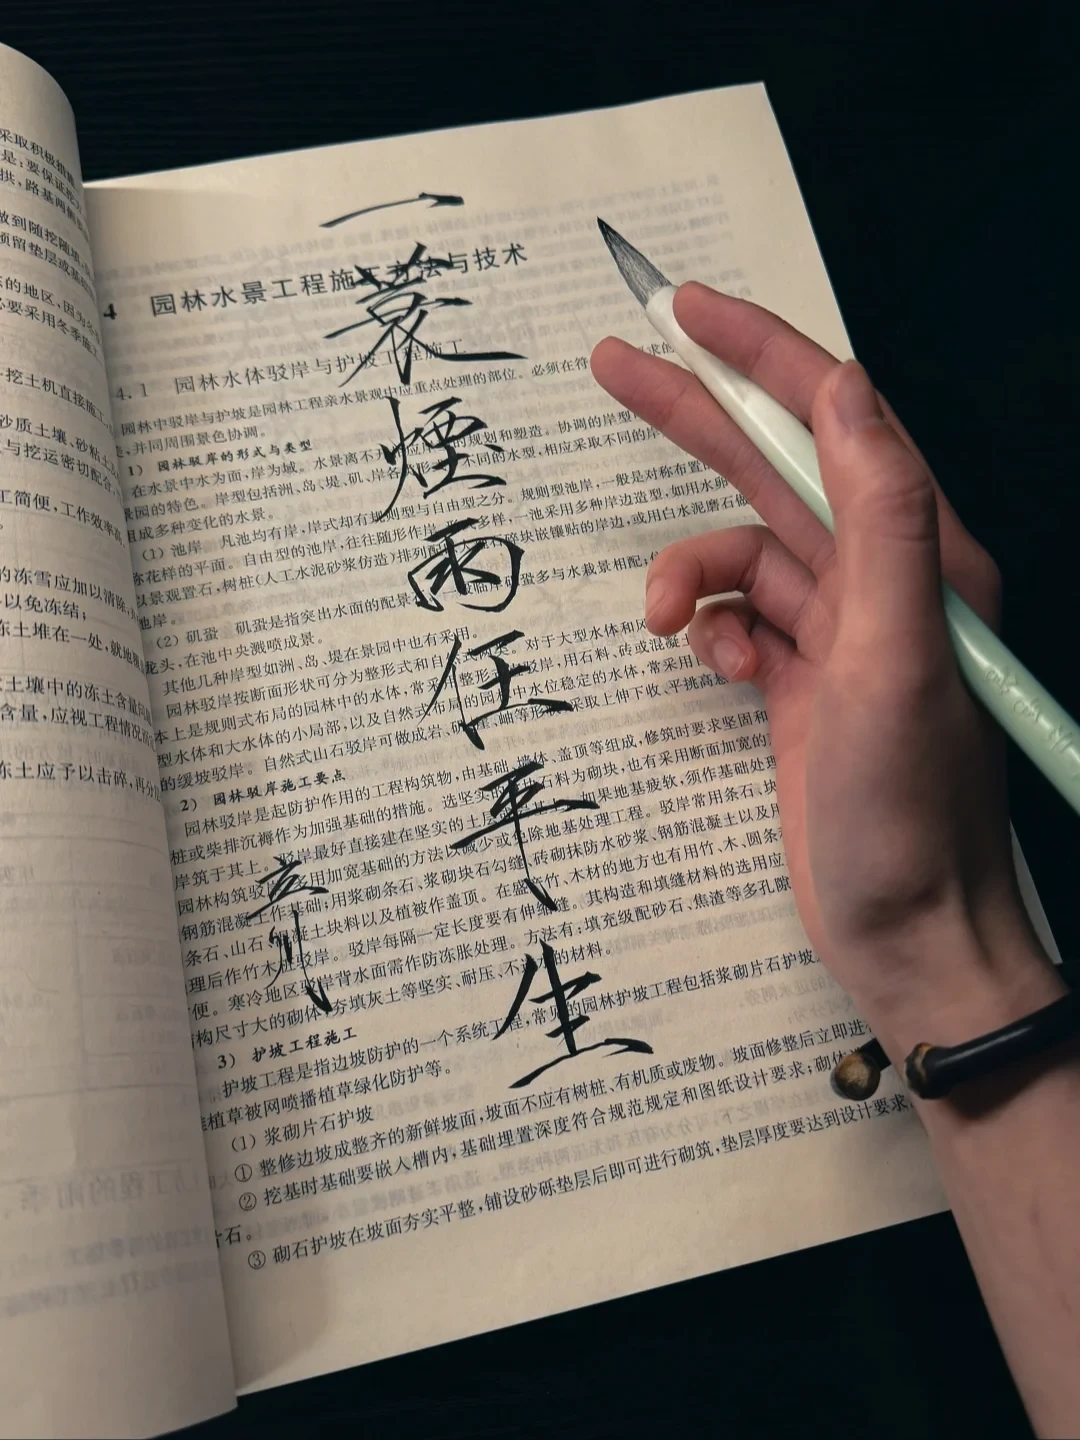 一蓑煙雨任平生
采取积极措
是：要保证
拱，路基两侧
做到随挖随填
预留垫层或基
的地区，因为冬
必要采用冬季施工
挖土机直接施工
砂质土壤、砂粘土
与挖运密切配合
工简便，工作效率高
的冻雪应加以清除
以免冻结；
冻土堆在一处，就地
土壤中的冻土含量
含量，应视工程情况而
冻土应予以击碎，再分
4 园林水景工程施工方法与技术
4.1 园林水体驳岸与护坡工程施工
园林中驳岸与护坡是园林工程亲水景观中应重点处理的部位。必须在符 求的
，并同周围景色协调。
1） 园林驳岸的形式与类型
在水景中水为面，岸为域。水景离不开 岸 的规划和塑造。协调的岸型
景园的特色。岸型包括洲、岛、堤、矶、岸各 形 不同的水型，相应采取不同的岸
组成多种变化的水景。
（1）池岸 凡池均有岸，岸式却有规则型与自由型之分。规则型池岸，一般是对称布置
花样的平面。自由型的池岸，往往随形作岸， 式多样，一池采用多种岸边造型，如用水
以景观置石，树桩（人工水泥砂浆仿造）排列 碎块嵌镶贴的岸边，或用白水泥磨石做
池岸。
（2）矶蚃 矶蚃是指突出水面的配景 一般临岸矶蚃多与水栽景相配，
龙头，在池中央溅喷成景。
其他几种岸型如洲、岛、堤在景园中也有采用。
园林驳岸按断面形状可分为整形式和自然式两类。对于大型水体和风
本上是规则式布局的园林中的水体，常采 整形 驳岸，用石料、砖或混凝土
型水体和大水体的小局部，以及自然式布局的园 中水位稳定的水体，常采用
的缓坡驳岸。自然式山石驳岸可做成岩、矶、崖、岫等形 采取上伸下收、平挑高悬
2） 园林驳岸施工要点
园林驳岸是起防护作用的工程构筑物，由基础、墙体、盖顶等组成，修筑时要求坚固和
桩或柴排沉褥作为加强基础的措施。选坚实的 石料为砌块，也有采用断面加宽的
岸筑于其上。驳岸最好直接建在坚实的土层 基 如果地基疲软，须作基础处理
园林构筑驳岸 多用加宽基础的方法以减少或免除地基处理工程。驳岸常用条石、块
钢筋混凝土作基础；用浆砌条石、浆砌块石勾缝、砖砌抹防水砂浆、钢筋混凝土以及用
条石、山石、混凝土块料以及植被作盖顶。在盛产竹、木材的地方也有用竹、木、圆条
理后作竹木桩驳岸。驳岸每隔一定长度要有伸缩缝。其构造和填缝材料的选用应
便。寒冷地区驳岸背水面需作防冻胀处理。方法有：填充级配砂石、焦渣等多孔隙
构尺寸大的砌体，夯填灰土等坚实、耐压、不透水的材料。
3） 护坡工程施工
护坡工程是指边坡防护的一个系统工程，常见的园林护坡工程包括浆砌片石护坡
植草被网喷播植草绿化防护等。
（1）浆砌片石护坡
① 整修边坡成整齐的新鲜坡面，坡面不应有树桩、有机质或废物。坡面修整后立即进
② 挖基时基础要嵌入槽内，基础埋置深度符合规范规定和图纸设计要求；砌体
片石。
③ 砌石护坡在坡面夯实平整，铺设砂砾垫层后即可进行砌筑，垫层厚度要达到设计要求